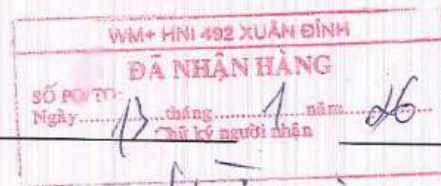 WM+ HNI 492 XUÂN ĐỈNH
ĐÃ NHẬN HÀNG
SỐ PO/TO:
Ngày 13 tháng 1 năm 26
Chữ ký người nhận